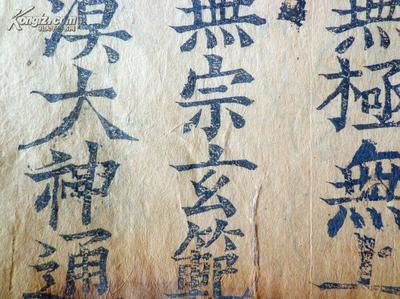 Kongfz.com
無極無上
無宗玄範
漠大神通